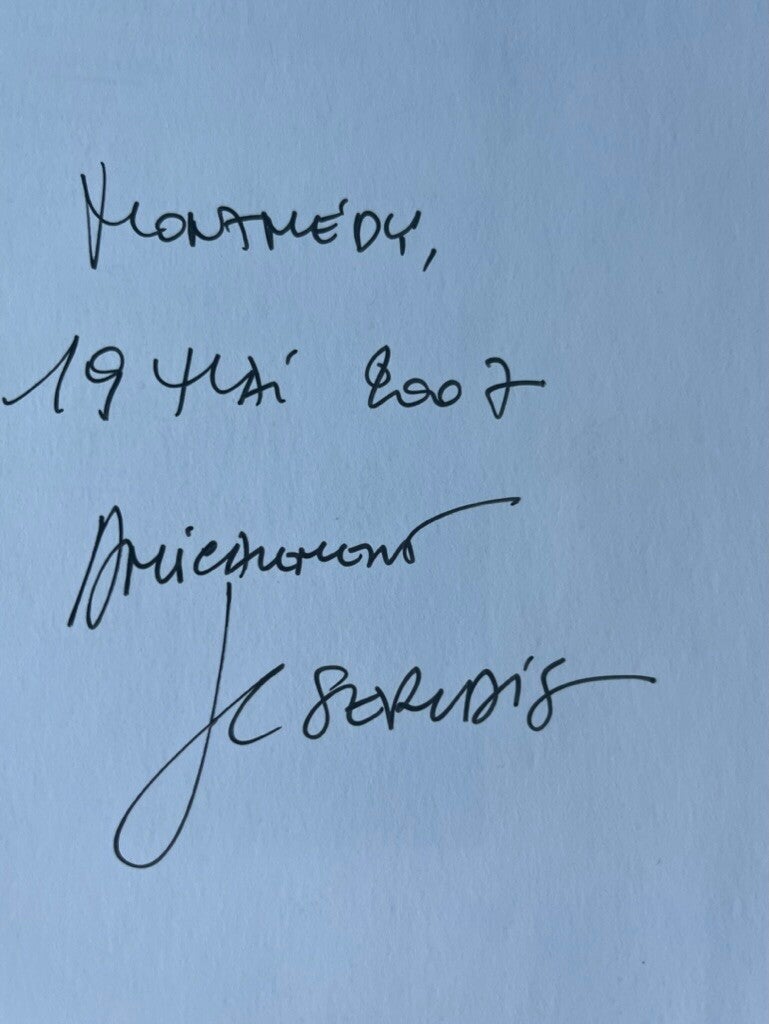 Montmédy,
19 Mai 2007
Amicalement
JC SERVAIS